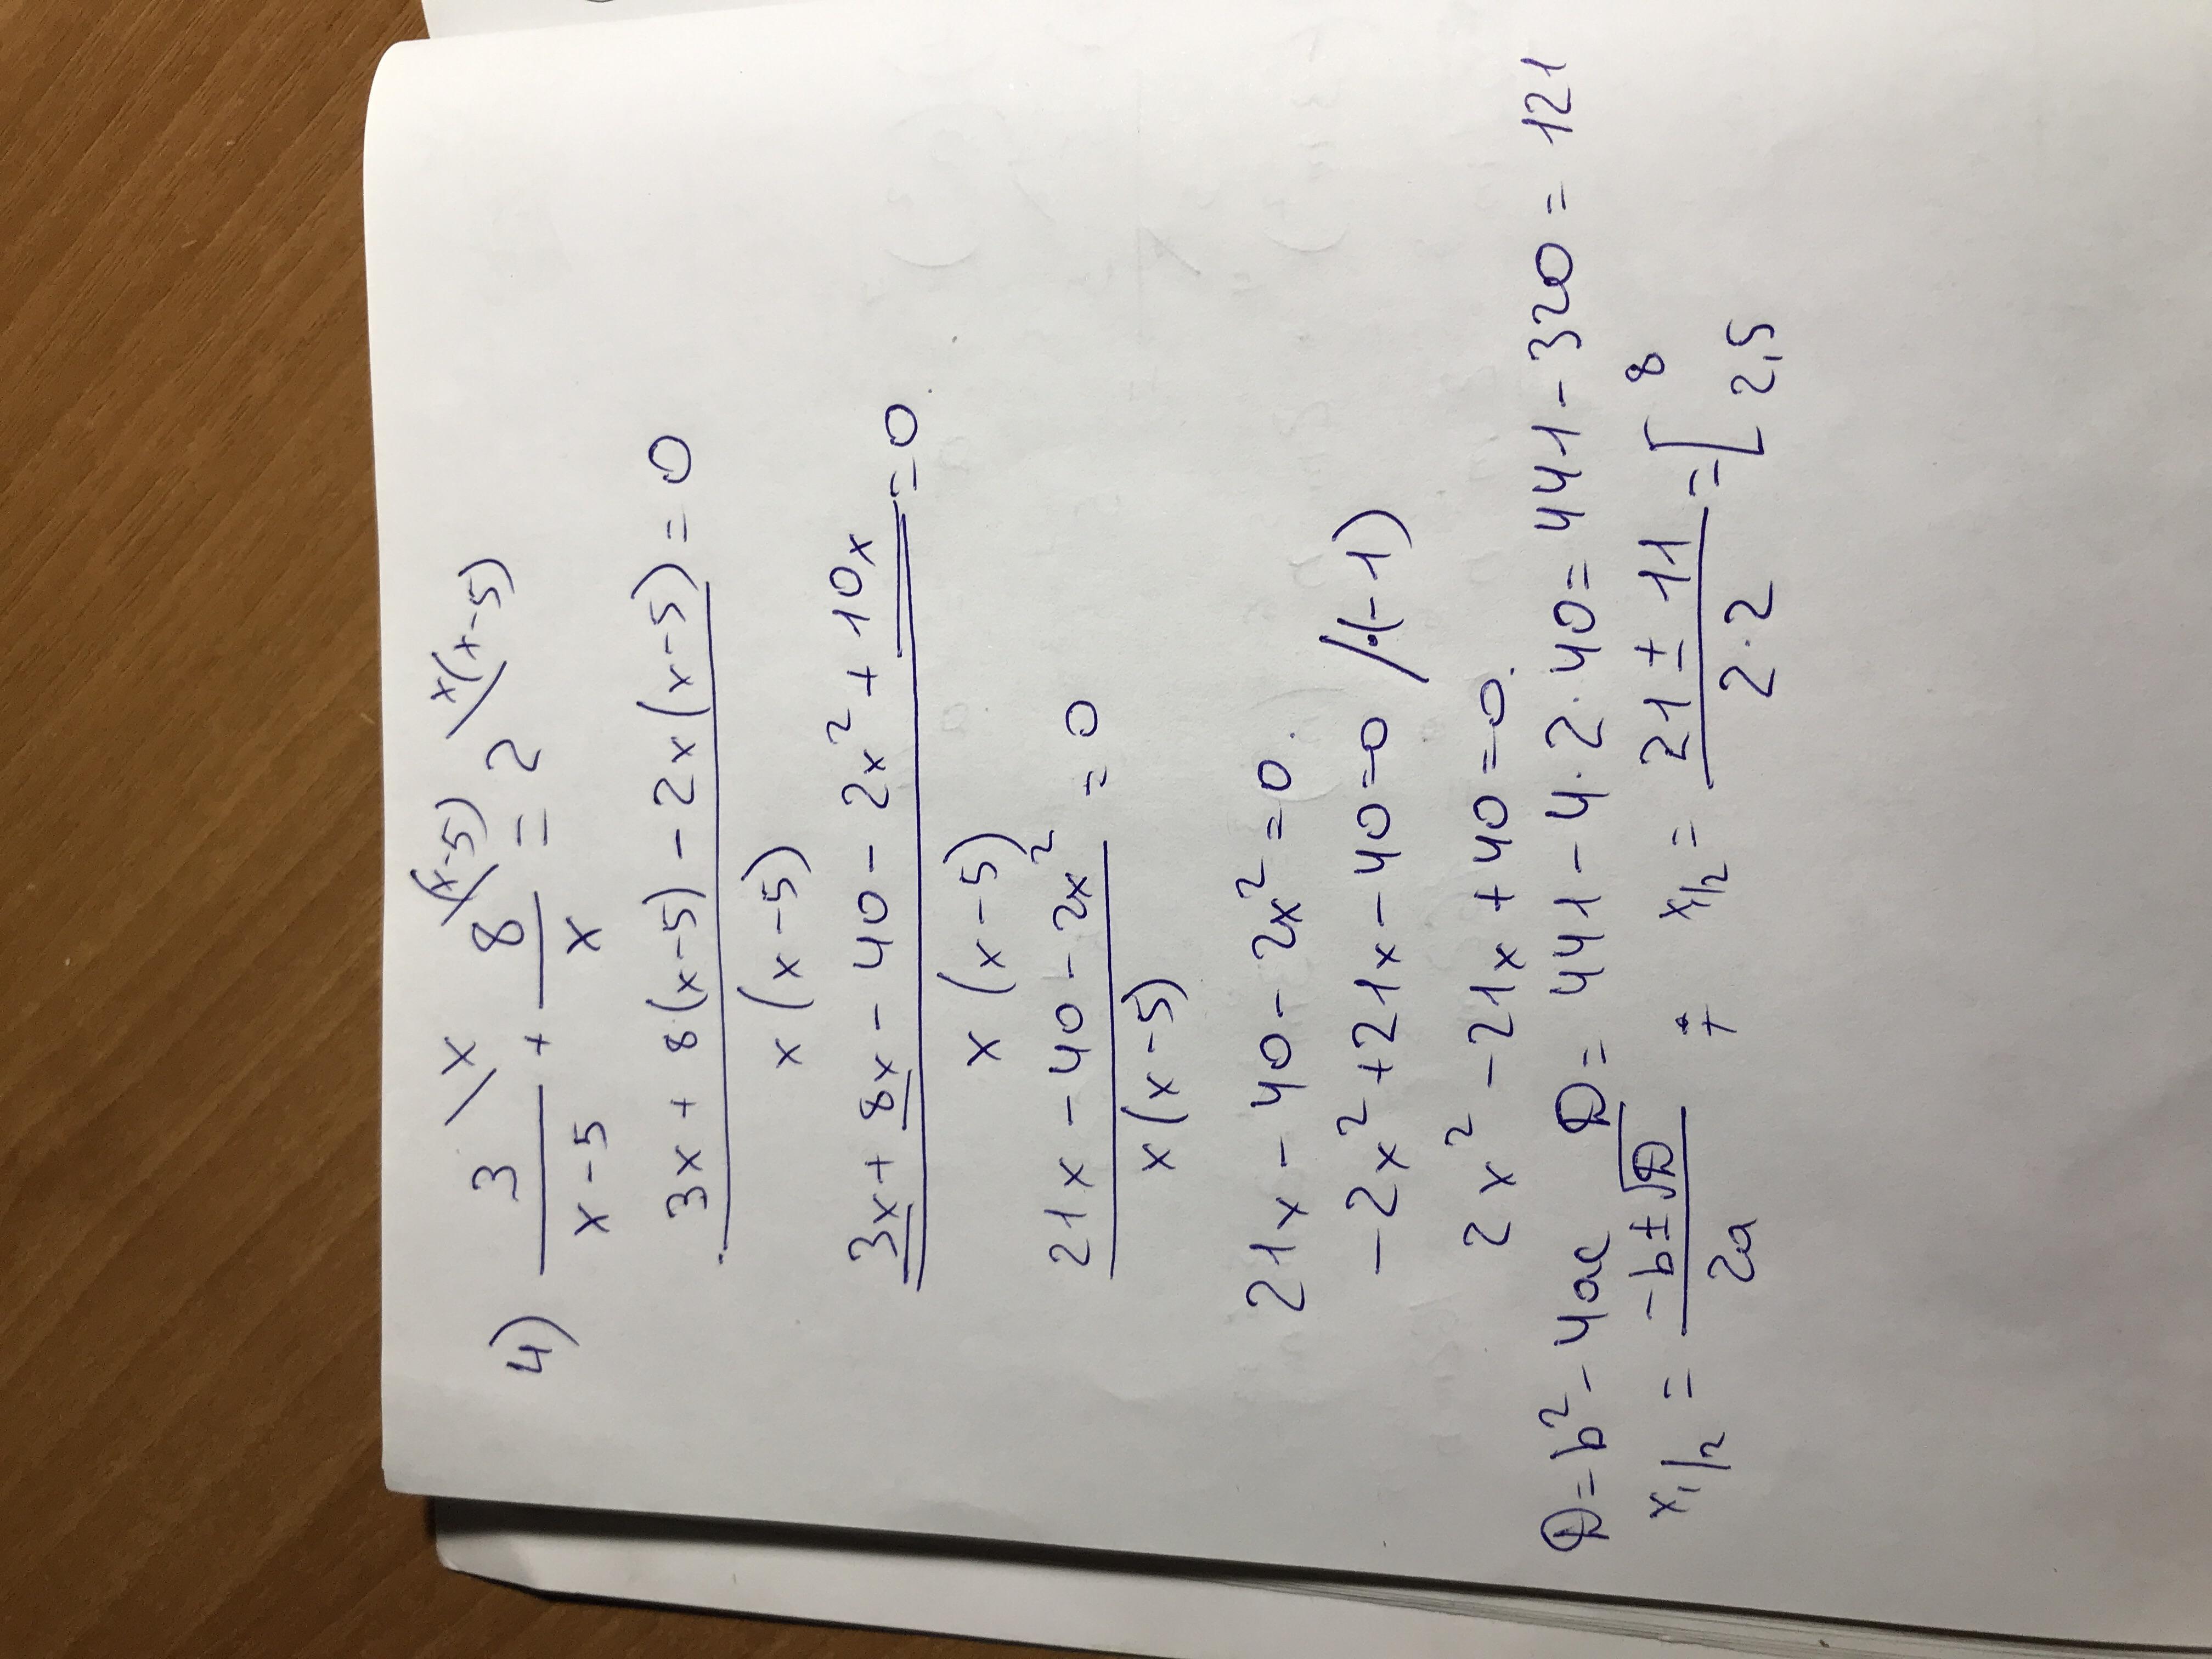 4) 3\x / x-5 + 8\(x-5) / x = 2\x(x-5)
3x + 8(x-5) - 2x(x-5) = 0
x(x-5)
3x + 8x - 40 - 2x² + 10x = 0
x(x-5)
21x - 40 - 2x² = 0
x(x-5)
21x - 40 - 2x² = 0.
-2x² + 21x - 40 = 0 /·(-1)
2x² - 21x + 40 = 0.
D = b² - 4ac D = 441 - 4·2·40 = 441 - 320 = 121
x1/2 = -b ± √D / 2a x1/2 = 21 ± 11 / 2·2 = [ 8
2,5